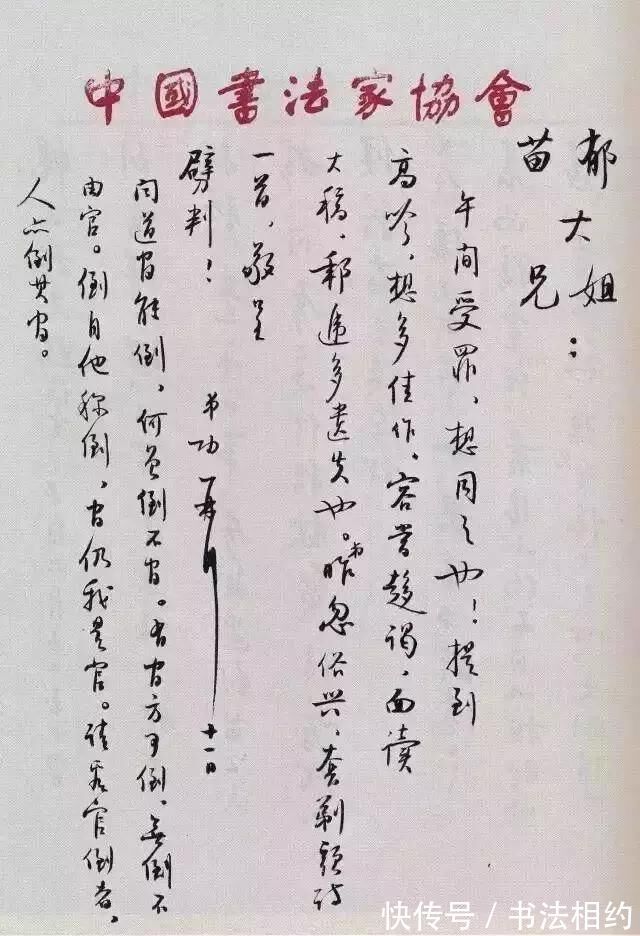 中國書法家協會
郁大姐：
苗兄
午间受罪，想同之也！提到
高吟，想多佳作，容当趋谒，面读
大稿，邮递多遗失也。弟昨忽俗兴，套剃头诗
一首，敬呈
劈判！
弟功 再拜 十一日
闻道官能倒，何曾倒不官。有官方可倒，无倒不
由官。倒自他称倒，官仍我是官。请看官倒者，
人亦倒其官。
快传号／书法相约